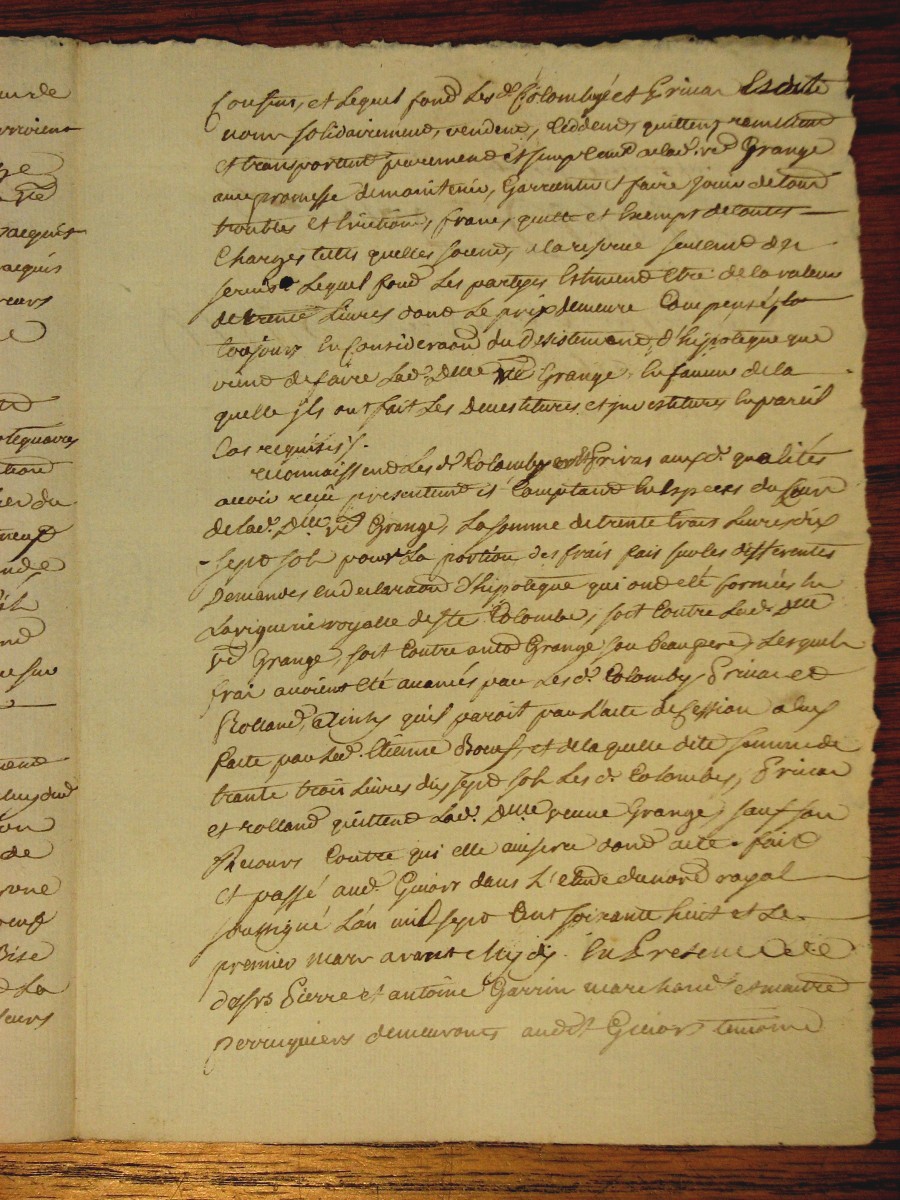 aurele
arrivient
Ve
jacquis
acquis
eurs
otequaires
tion
de
pone
Bise
La
leurs
Confins, et Lequel fond Les d. Colombyé et Privar Esdits
noms solidairement, vendent, Ceddent, quittent, remettent
et transportent purement et simplemt. a lad. ve. Grange
avec promesse de maintenir, Garrentir et faire jouir de tous
troubles et Evictions, franc, quitte et Exempt de toutes
Charges telles quelles soient, a la reserve seulement d'un
servis. Lequel fond Les partyes Estiment Etre de la valeur
de trente Livres dont Le prix demeure Compensé
toujours En Consideraon du Desistement d'hipoteque que
vient de faire Lad. Dlle ve. Grange, En faveur de la
quelle ils ont fait Les Devestitures et investitures En pareil
Cas requises /.
reconnaissent Les d. Colomby et Privas auxd. qualités
avoir reçu presentemt et Comptant En Especes du Cours
de lad. Dlle ve. Grange, La somme de trente trois Livres dix
sept sols pour La portion des frais fais sur les differentes
Demandes en declaraon d'hipoteque qui ont été formées En
La viguerie royalle de Ste Colombe, soit Contre Lad. Dlle
ve. Grange, soit Contre antoe. Grange son beaupere, Lesquels
frai avoient Eté avancés par Les d. Colomby, Privar et
Rolland, ainsy qu'il paroit par L'acte de Cession a Eux
faite par Led. Etienne Boeuf, et de la quelle dite somme de
trante trois Livres dix sept sols Les d. Colomby, Privar
et rolland quittent Lad. Dlle veuve Grange, sauf son
Recours Contre qui elle avisera dont acte. fait
et passé aud. Guiors dans L'etude du nore. royal
soussigné L'an mil sept Cent soixante huit et Le
premier mars avant Midy. En Presence de
desrs. Pierre et antoine Garrin marchands et maitre
perruquiers demeurants audt. Guiors temoins